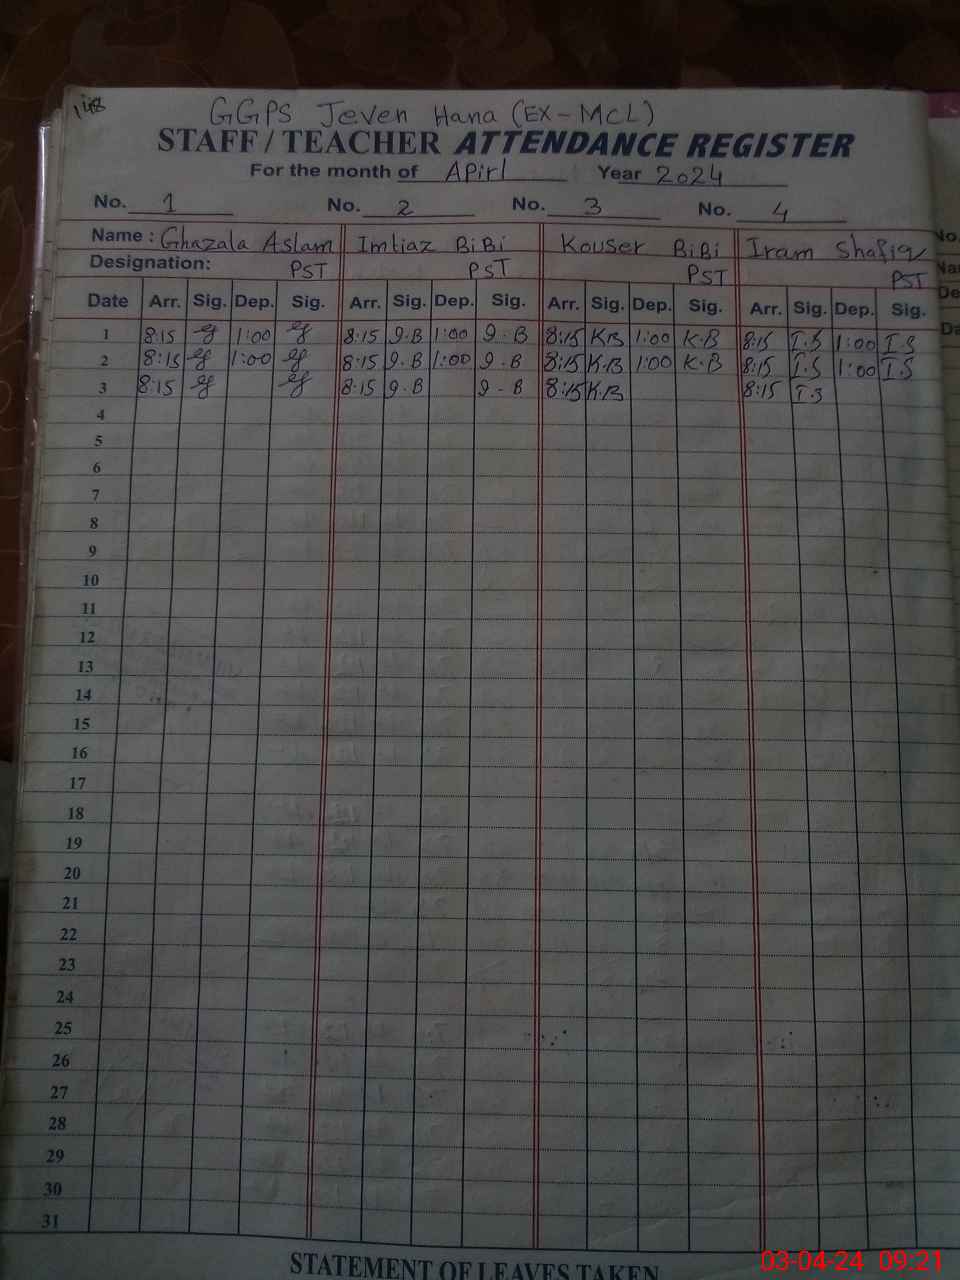 GGPS Jeven Hana (EX-MCL)
STAFF / TEACHER ATTENDANCE REGISTER
For the month of APirl Year 2024
No. 1 No. 2 No. 3 No. 4
Name : Ghazala Aslam Imtiaz BiBi Kouser BiBi Iram Shafiq
Designation: PST PST PST PST
Date Arr. Sig. Dep. Sig. Arr. Sig. Dep. Sig. Arr. Sig. Dep. Sig. Arr. Sig. Dep. Sig.
1 8:15 1:00 8:15 I.B 1:00 I.B 8:15 K.B 1:00 K.B 8:15 I.S 1:00 I.S
2 8:15 1:00 8:15 I.B 1:00 I.B 8:15 K.B 1:00 K.B 8:15 I.S 1:00 I.S
3 8:15 8:15 I.B I.B 8:15 K.B 8:15 I.S
4
5
6
7
8
9
10
11
12
13
14
15
16
17
18
19
20
21
22
23
24
25
26
27
28
29
30
31
STATEMENT OF LEAVES TAKEN
03-04-24 09:21